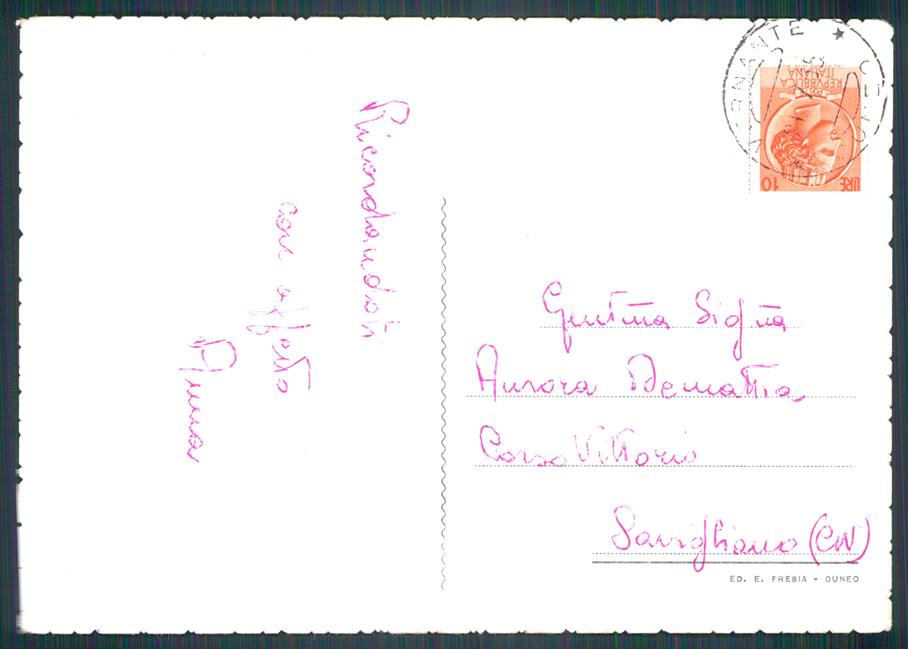 Ricordandoti
con affetto
Anna
VERNANTE ★ CUNEO
REPVBBLICA
ITALIANA
LIRE 10
Gentma Sigña
Aurora Demattia
Corso Vittorio
Savigliano (CN)
ED. E. FRESIA - CUNEO